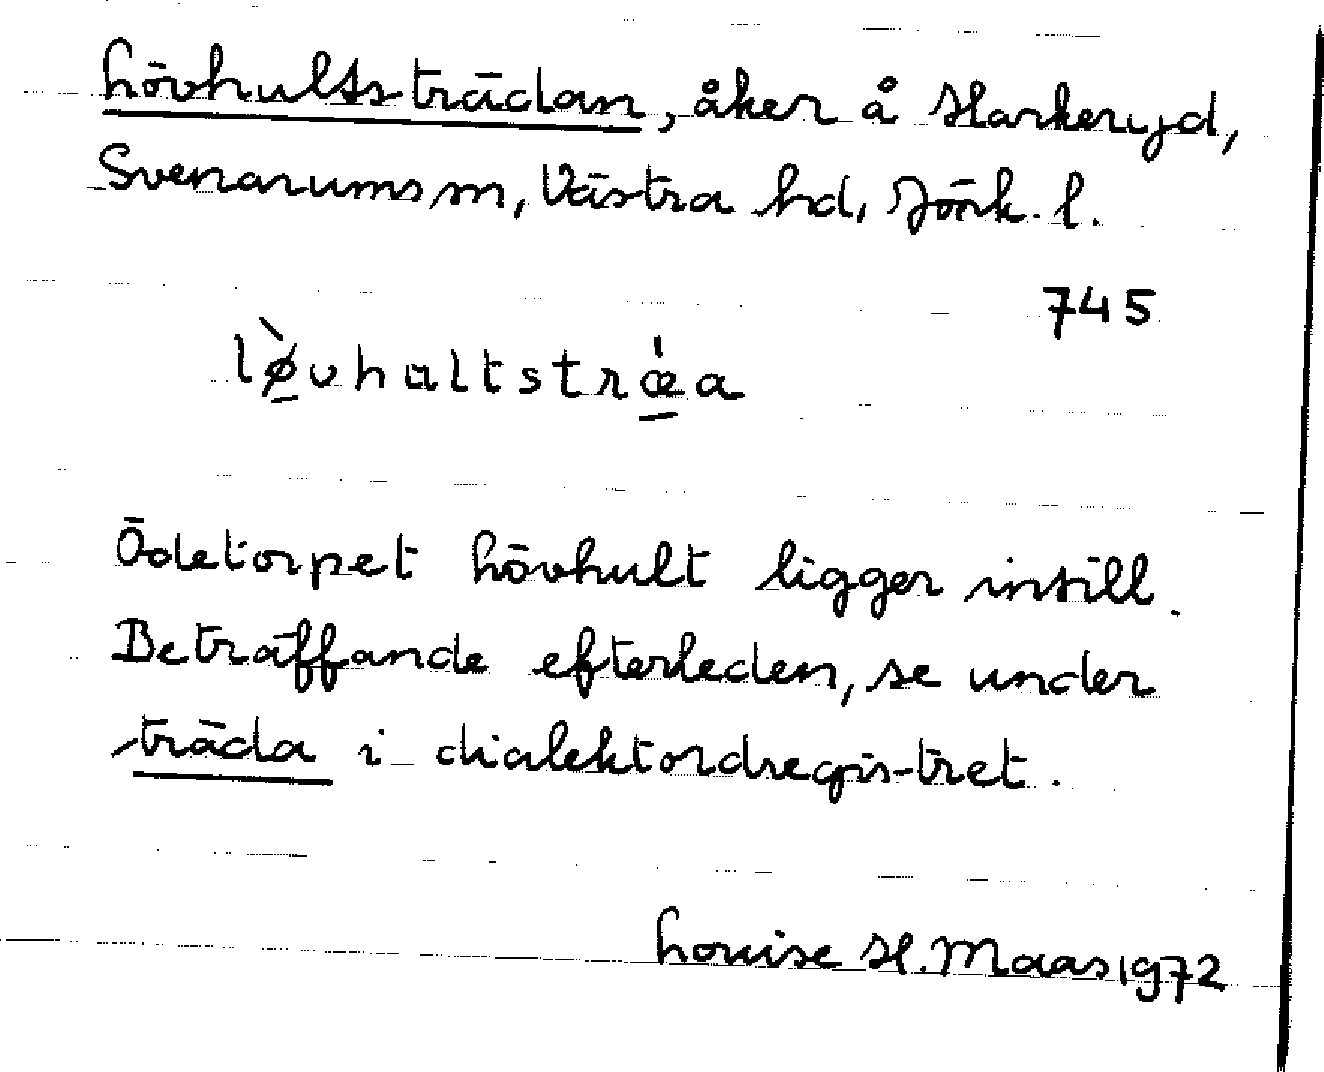 Lövhultsträdan, åker å Harkeryd,
Svenarums sn, Västra hd, Jönk. l.
745
lø̀vhultstrǽa
Ödetorpet Lövhult ligger intill.
Beträffande efterleden, se under
träda i dialektordregistret.
Louise H. Maas 1972